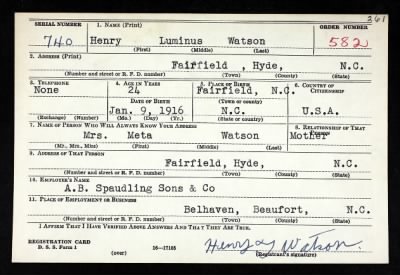 361
SERIAL NUMBER 1. NAME (Print) ORDER NUMBER
740 Henry Luminus Watson 582
(First) (Middle) (Last)
2. ADDRESS (Print)
Fairfield , Hyde, N.C.
(Number and street or R. F. D. number) (Town) (County) (State)
3. TELEPHONE 4. AGE IN YEARS 5. PLACE OF BIRTH 6. COUNTRY OF CITIZENSHIP
None 24 Fairfield, N.C.
DATE OF BIRTH (Town or county)
Jan. 9, 1916 N.C. U.S.A.
(Exchange) (Number) (Mo.) (Day) (Yr.) (State or country)
7. NAME OF PERSON WHO WILL ALWAYS KNOW YOUR ADDRESS 8. RELATIONSHIP OF THAT PERSON
Mrs. Meta Watson Mother
(Mr., Mrs., Miss) (First) (Middle) (Last)
9. ADDRESS OF THAT PERSON
Fairfield, Hyde, N.C.
(Number and street or R. F. D. number) (Town) (County) (State)
10. EMPLOYER'S NAME
A.B. Spaudling Sons & Co
11. PLACE OF EMPLOYMENT OR BUSINESS
Belhaven, Beaufort, N.C.
(Number and street or R. F. D. number) (Town) (County) (State)
I AFFIRM THAT I HAVE VERIFIED ABOVE ANSWERS AND THAT THEY ARE TRUE.
REGISTRATION CARD
D. S. S. Form 1 (over) 16—17105 Henry L Watson.
(Registrant's signature)